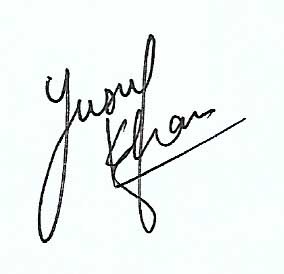 Yusuf
Khan